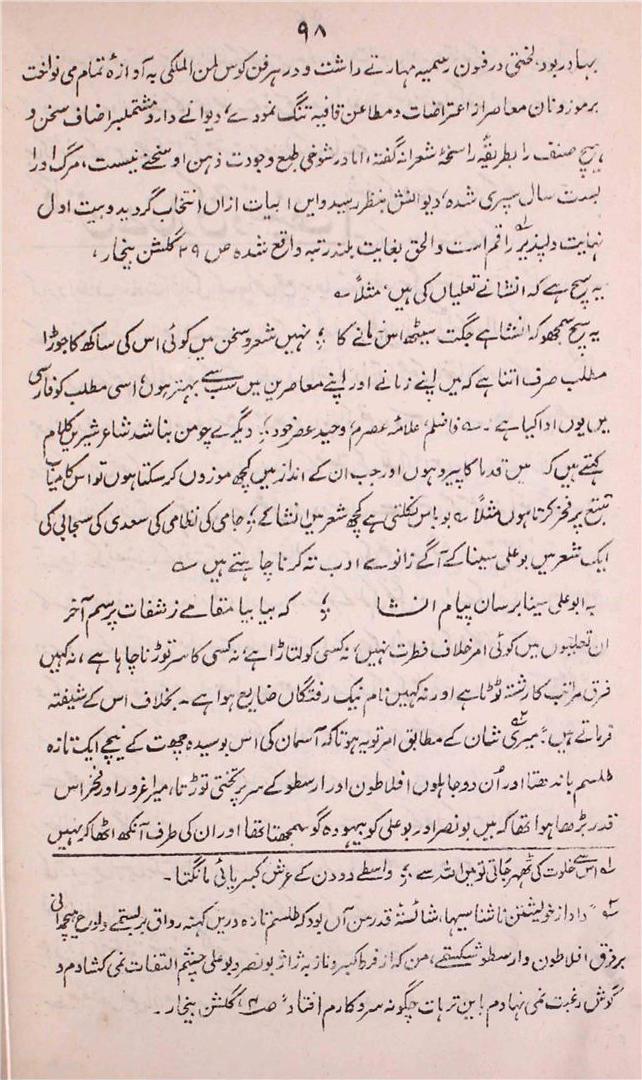 ۹۸
بہادر بود، لختی در فنون رسمیہ مہارتے داشت و در ہر فن کوس لمن الملکی بہ آوازۂ تمام می نواخت
بر موزونان معاصر از اعتراضات و مطاعن قافیہ تنگ نمودے، دیوانے دارد مشتملبر اصناف سخن و
ہیچ صنف را بطریقۂ راسخۂ شعرا نہ گفتہ، اما در شوخی طبع و جودت ذہن او سخنے نیست، مرگ او را
بست سال سپری شدہ، دیوانش بنظر رسید و ایں ابیات ازاں انتخاب گردید و بیت اول
نہایت دلپذیر راقم است والحق بغایت بلند رتبہ واقع شدہ ص ۲۹ گلشن بیخار،
یہ سچ ہے کہ انشا نے تعلیاں کی ہیں، مثلاً ؎
یہ سچ سمجھو کہ انشا ہے جگت سیٹھ اس زمانے کا ؛ نہیں شعر و سخن میں کوئی اس کی ساکھ کا جوڑا
مطلب صرف اتنا ہے کہ میں اپنے زمانے اور اپنے معاصرین میں سب سے بہتر ہوں، اسی مطلب کو فارسی
میں یوں ادا کیا ہے۔ ؎ فاضلم علامۂ عصرم، وحید عصر خود ؛ دیگرے چو من بنا شد شاعر شیریں کلام
کہتے ہیں کہ میں قدما کا پیرو ہوں اور جب ان کے انداز میں کچھ موزوں کر سکتا ہوں تو اس کامیاب
تتبع پر فخر کرتا ہوں مثلاً ؎ بو باس نکلتی ہے کچھ شعر میں انشا کے ؛ جامی کی نظامی کی سعدی کی سحابی کی
ایک شعر میں بو علی سینا کے آگے زانوے ادب تہ کرنا چاہتے ہیں ؎
بہ ابو علی سینا برسان پیام انشا ؛ کہ بیا بیا مقامے ز شفات پرسم آخر
ان تعلیوں میں کوئی امر خلاف فطرت نہیں، نہ کسی کو لتاڑا ہے، نہ کسی کا سر توڑنا چاہا ہے، نہ کہیں
فرق مراتب کا رشتہ ٹوٹا ہے اور نہ کہیں نام نیک رفتگاں ضایع ہوا ہے۔ بخلاف اس کے شیفتہ
فرماتے ہیں: میری شان کے مطابق امر تو یہ ہوتا کہ آسمان کی اس بوسیدہ چھت کے نیچے ایک تازہ
طلسم باندھتا اور اُن دو جاہلوں افلاطون اور ارسطو کے سر پر تختی توڑتا، میرا غرور اور فخر اس
قدر بڑھا ہوا تھا کہ میں بو نصر اور بو علی کو بیہودہ گو سمجھتا تھا اور ان کی طرف آنکھ اٹھا کر نہیں
۱؎ اس سے خلوت کی ٹھہر جاتی تو میں اللہ سے ؛ واسطے دو دن کے عرش کبریائی مانگتا۔
۲؎ "داد از خویشتن ناشناسیہا، شائستہ قدر من آں بود کہ طلسم تازہ دریں کہنہ رواق بر بستمے و لوح ہیچمدانی
بر فرق افلاطون و ارسطو شکستمے، من کہ از فرط کبر و ناز بہ ژاژ بو نصر و بو علی چشم التفات نمی کشادم و
گوش رغبت نمی نہادم بایں ترہات چگونہ سر و کارم افتاد" ص ۴، گلشن بیخار۔